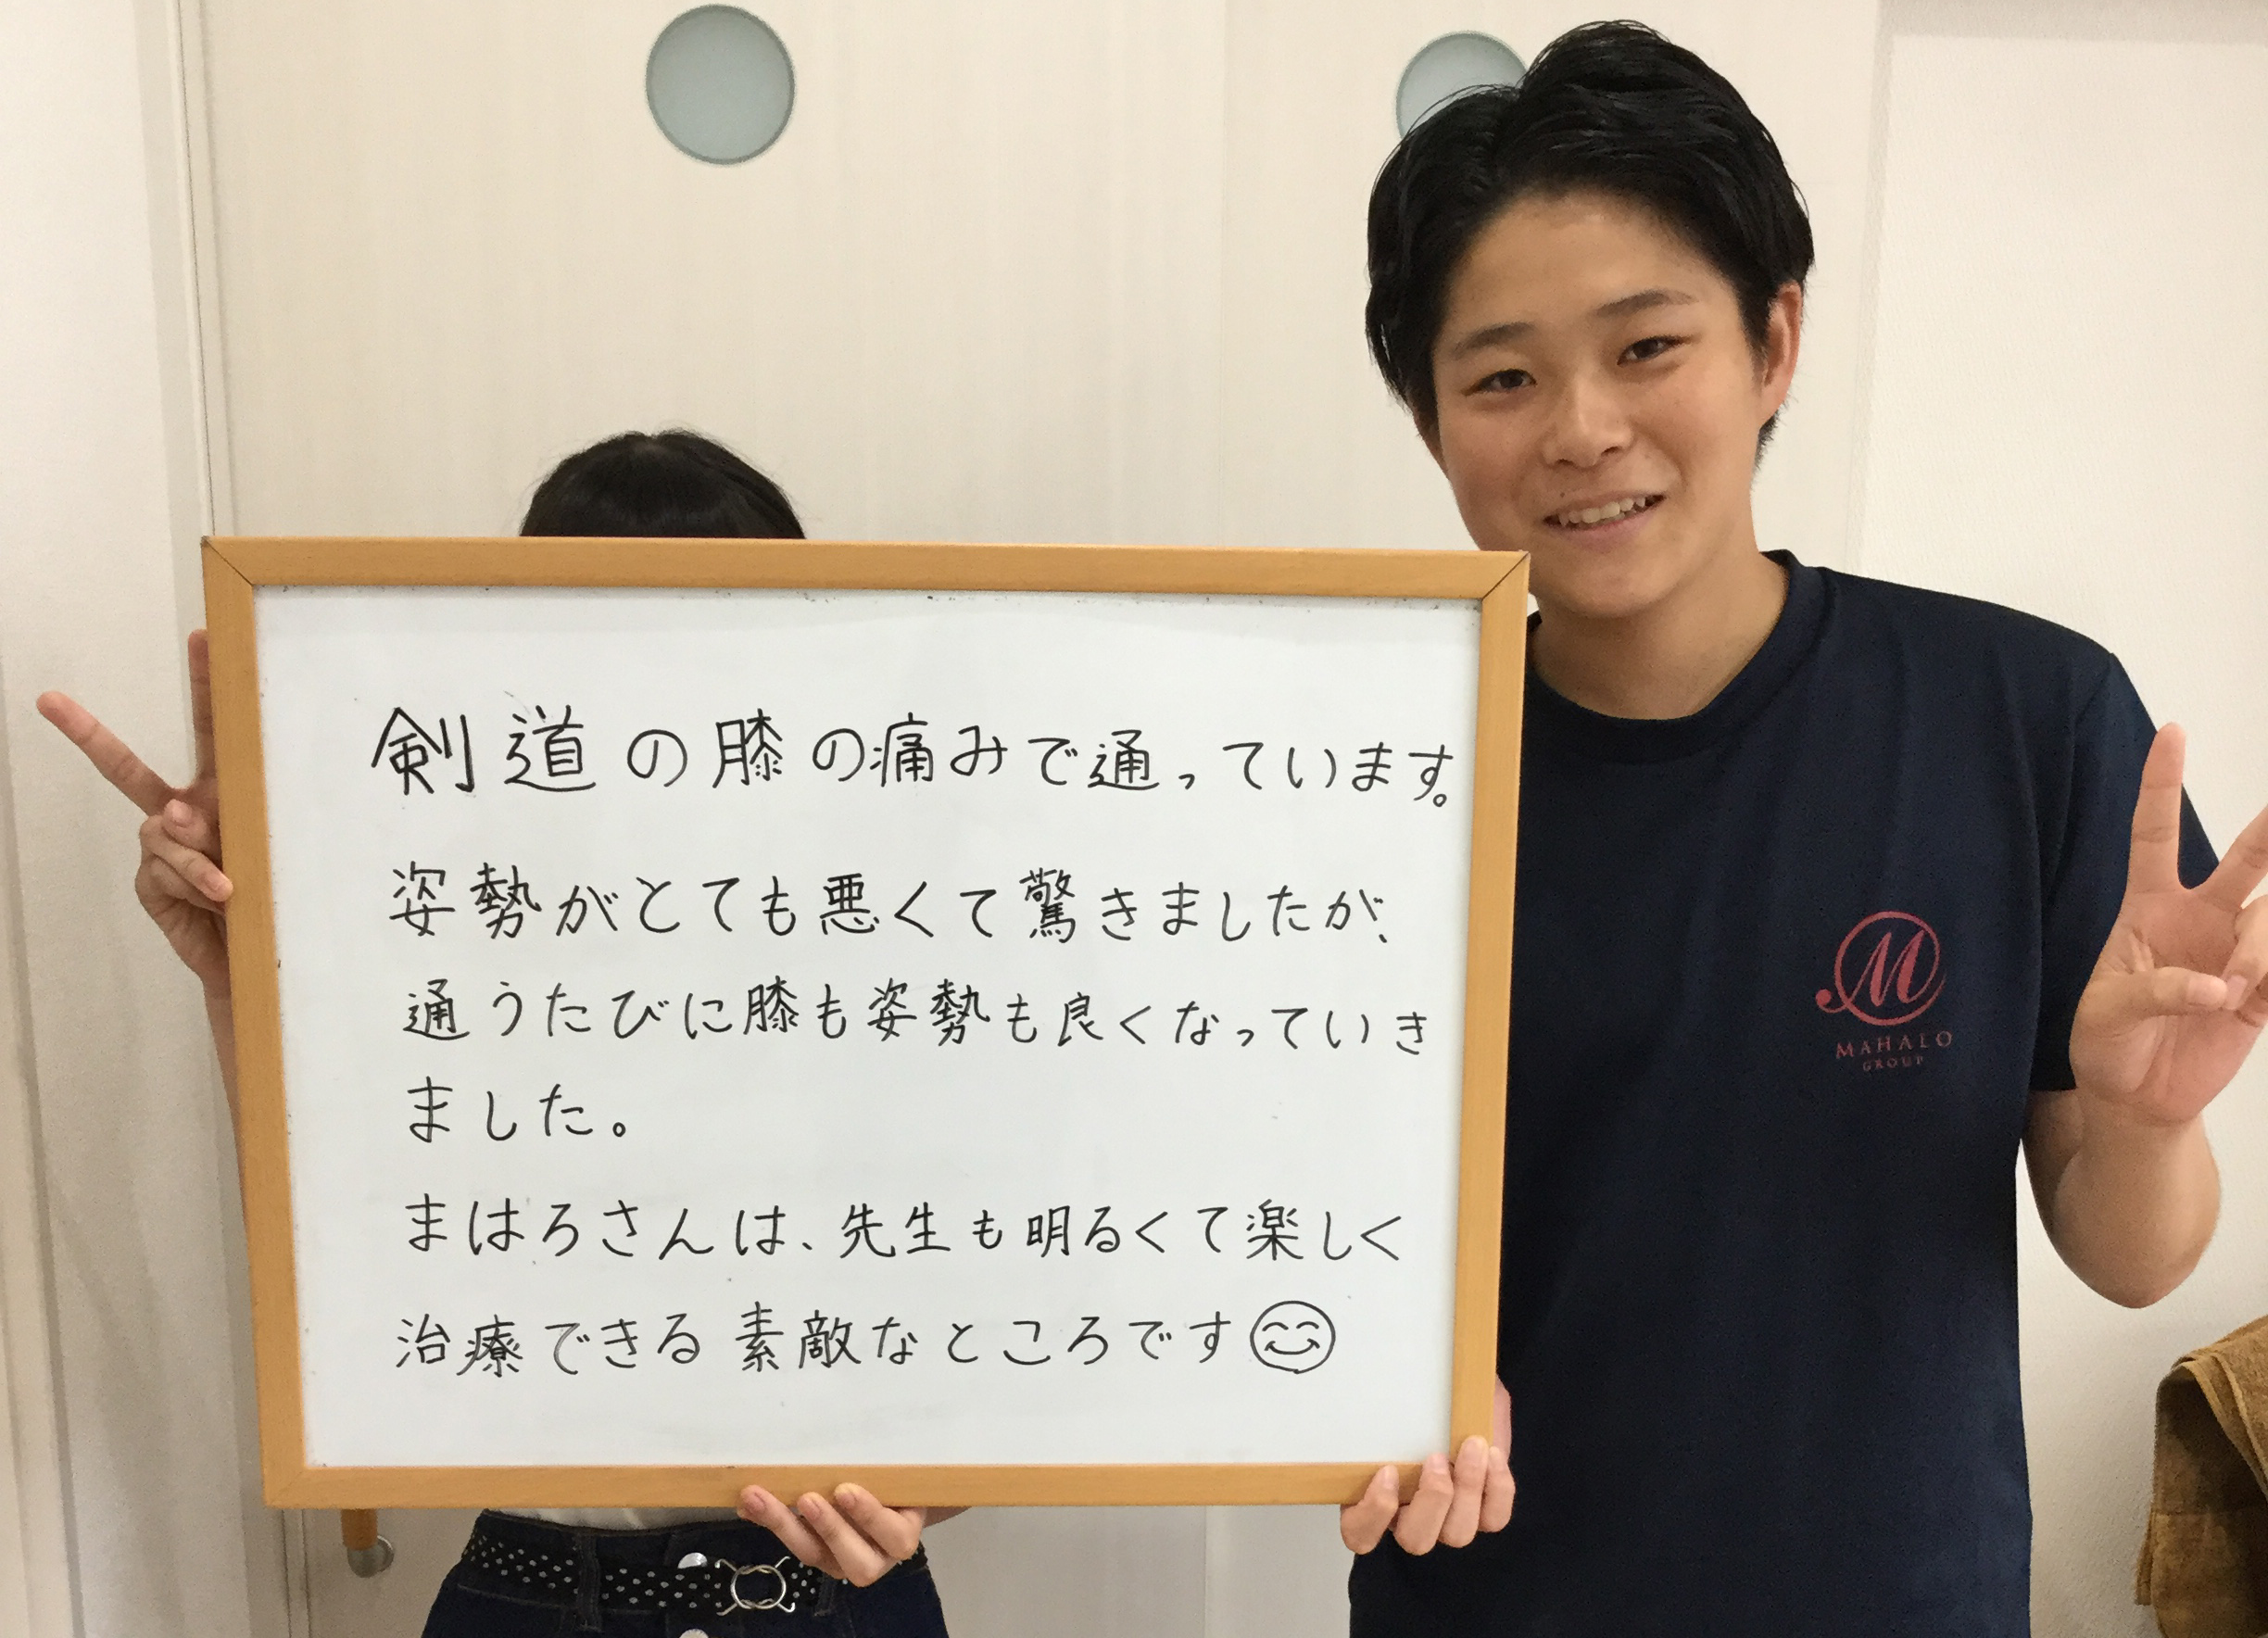 剣道の膝の痛みで通っています。
姿勢がとても悪くて驚きましたが、
通うたびに膝も姿勢も良くなっていき
ました。
まはろさんは、先生も明るくて楽しく
治療できる素敵なところです😊
M
MAHALO
GROUP